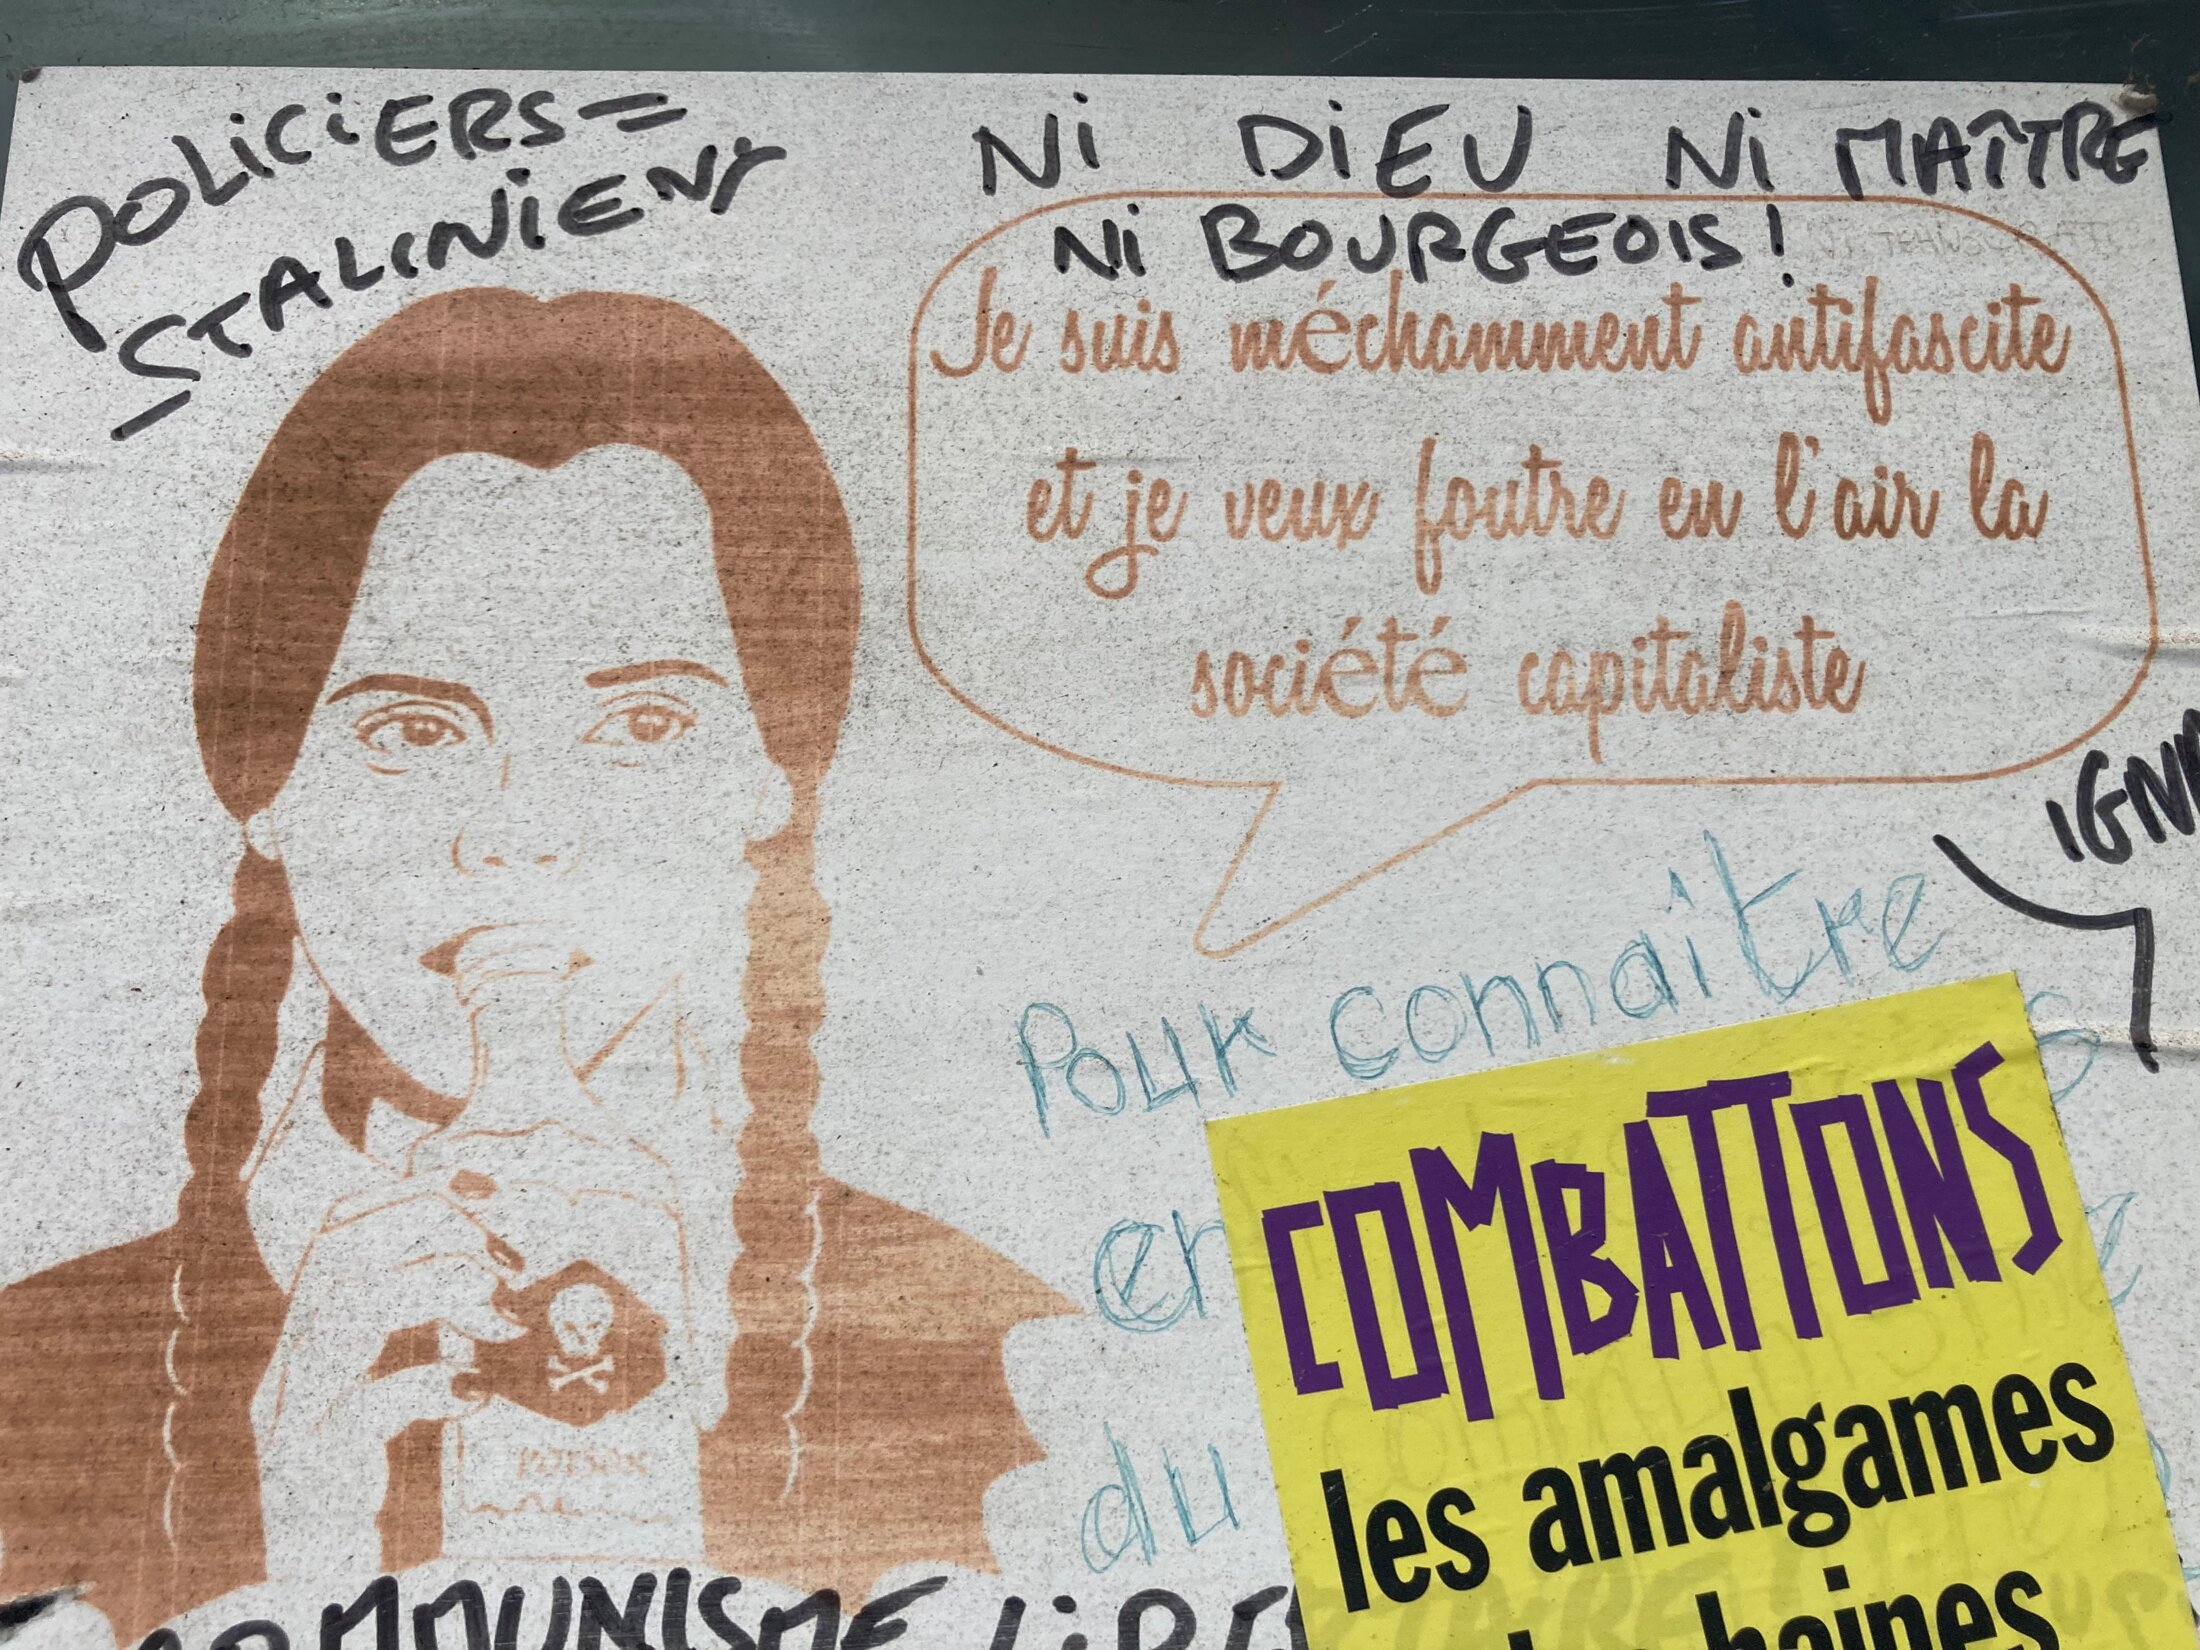 POLICIERS =
STALINIENS
NI DIEU NI MAÎTRE
NI BOURGEOIS !
Je suis méchamment antifascite
et je veux foutre en l'air la
société capitaliste
Pour connaître
COMBATTONS
les amalgames
haines
du
POISON
COMMUNISME